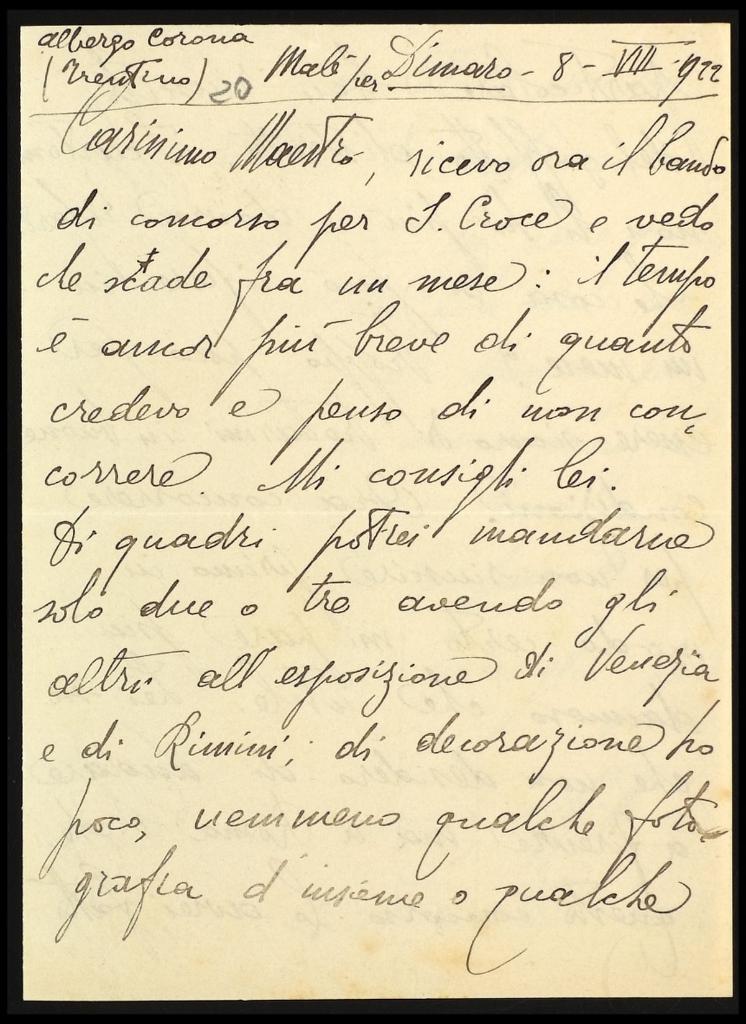 albergo Corona
(Trentino) 20 Malè per Dimaro - 8 - VIII - 1922
Carissimo Maestro, ricevo ora il bando
di concorso per S. Croce e vedo
che scade fra un mese: il tempo
è ancor più breve di quanto
credevo e penso di non con-
correre. Mi consigli lei.
Di quadri potrei mandarne
solo due o tre avendo gli
altri all'esposizione di Venezia
e di Rimini; di decorazione ho
poco, nemmeno qualche foto-
grafia d'insieme o qualche